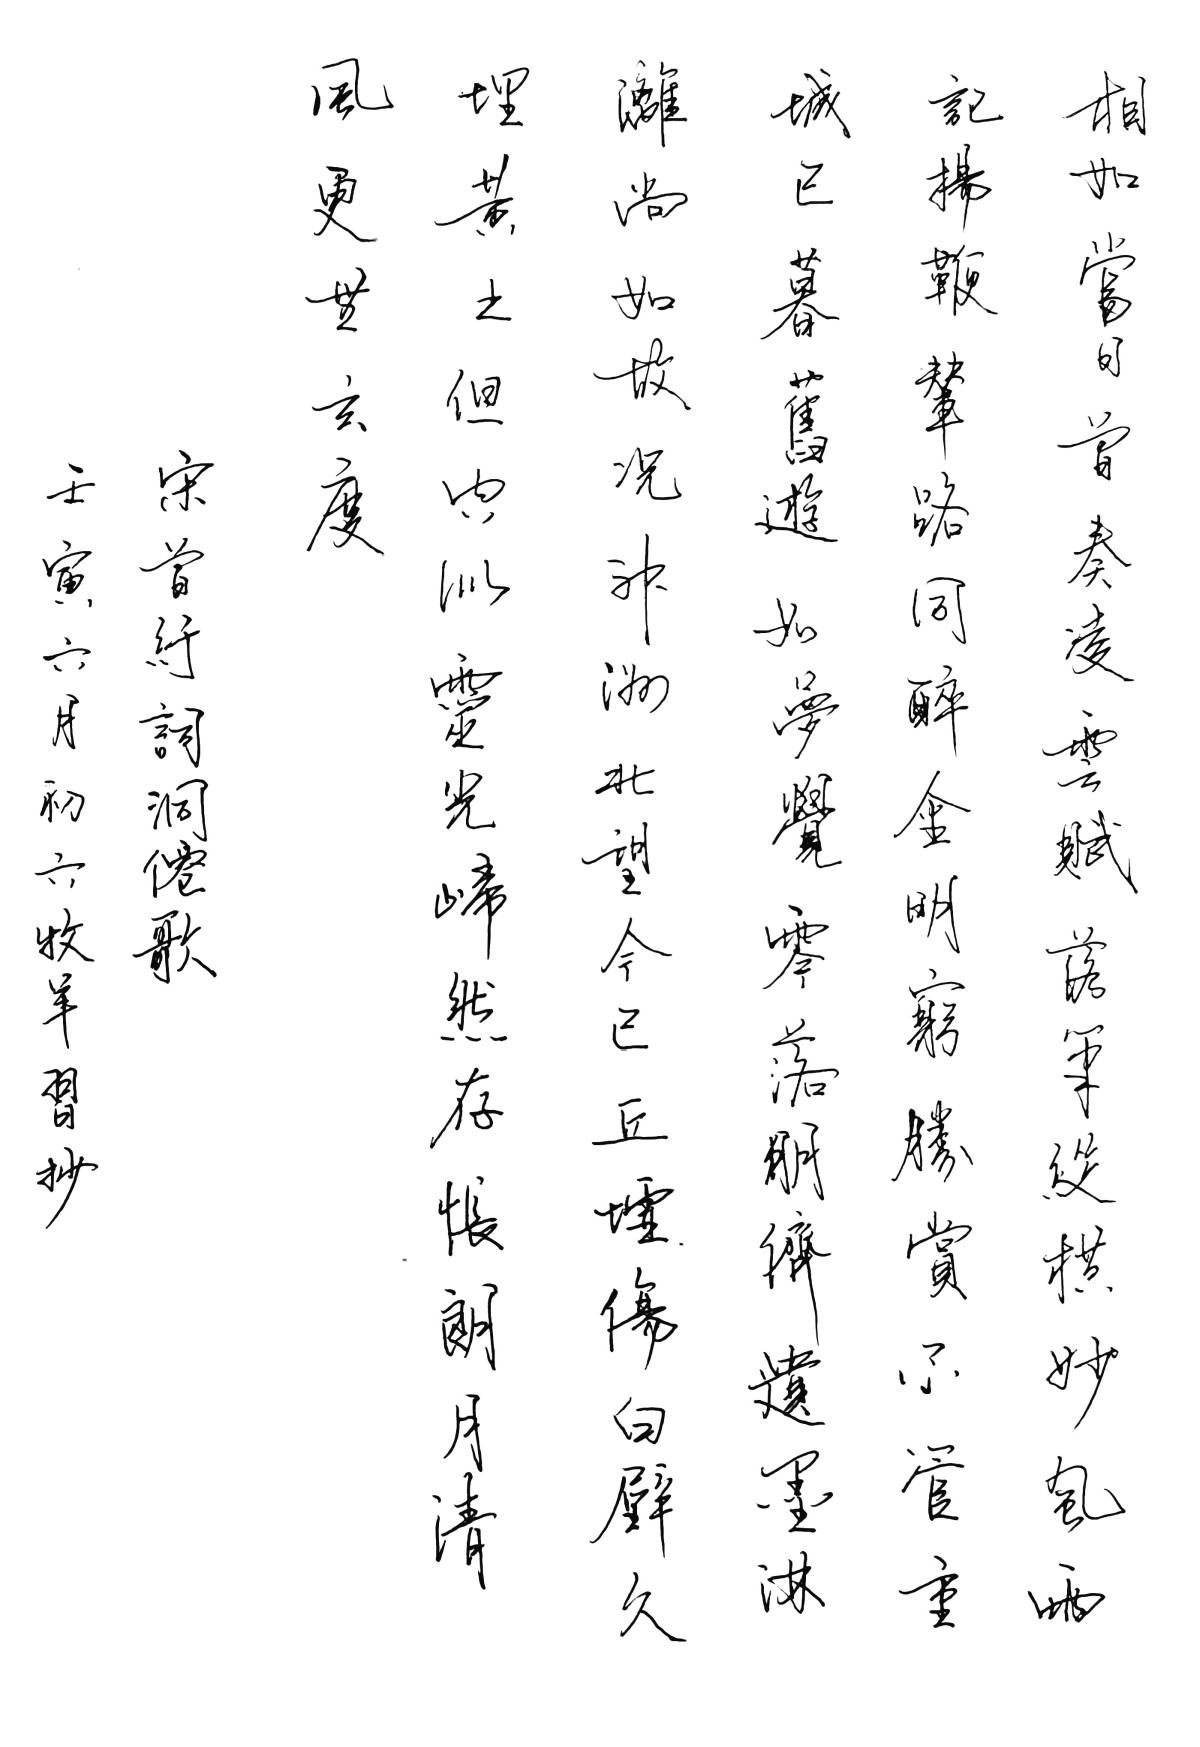 相如當日曾奏凌雲賦落筆縱橫妙風雨
記揚鞭輦路同醉金明窮勝賞不管重
城已暮舊遊如夢覺零落朋儕遺墨淋
灕尚如故況神州北望今已丘墟傷白璧久
埋黃土但空似靈光巋然存悵朗月清
風更無玄度
宋曾紆詞洞僊歌
壬寅六月初六牧羊習抄